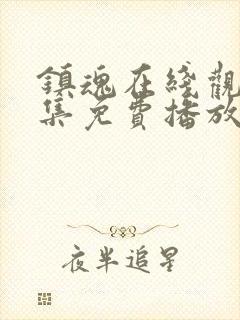 鎮魂在綫觀
集免費播放
夜半追星